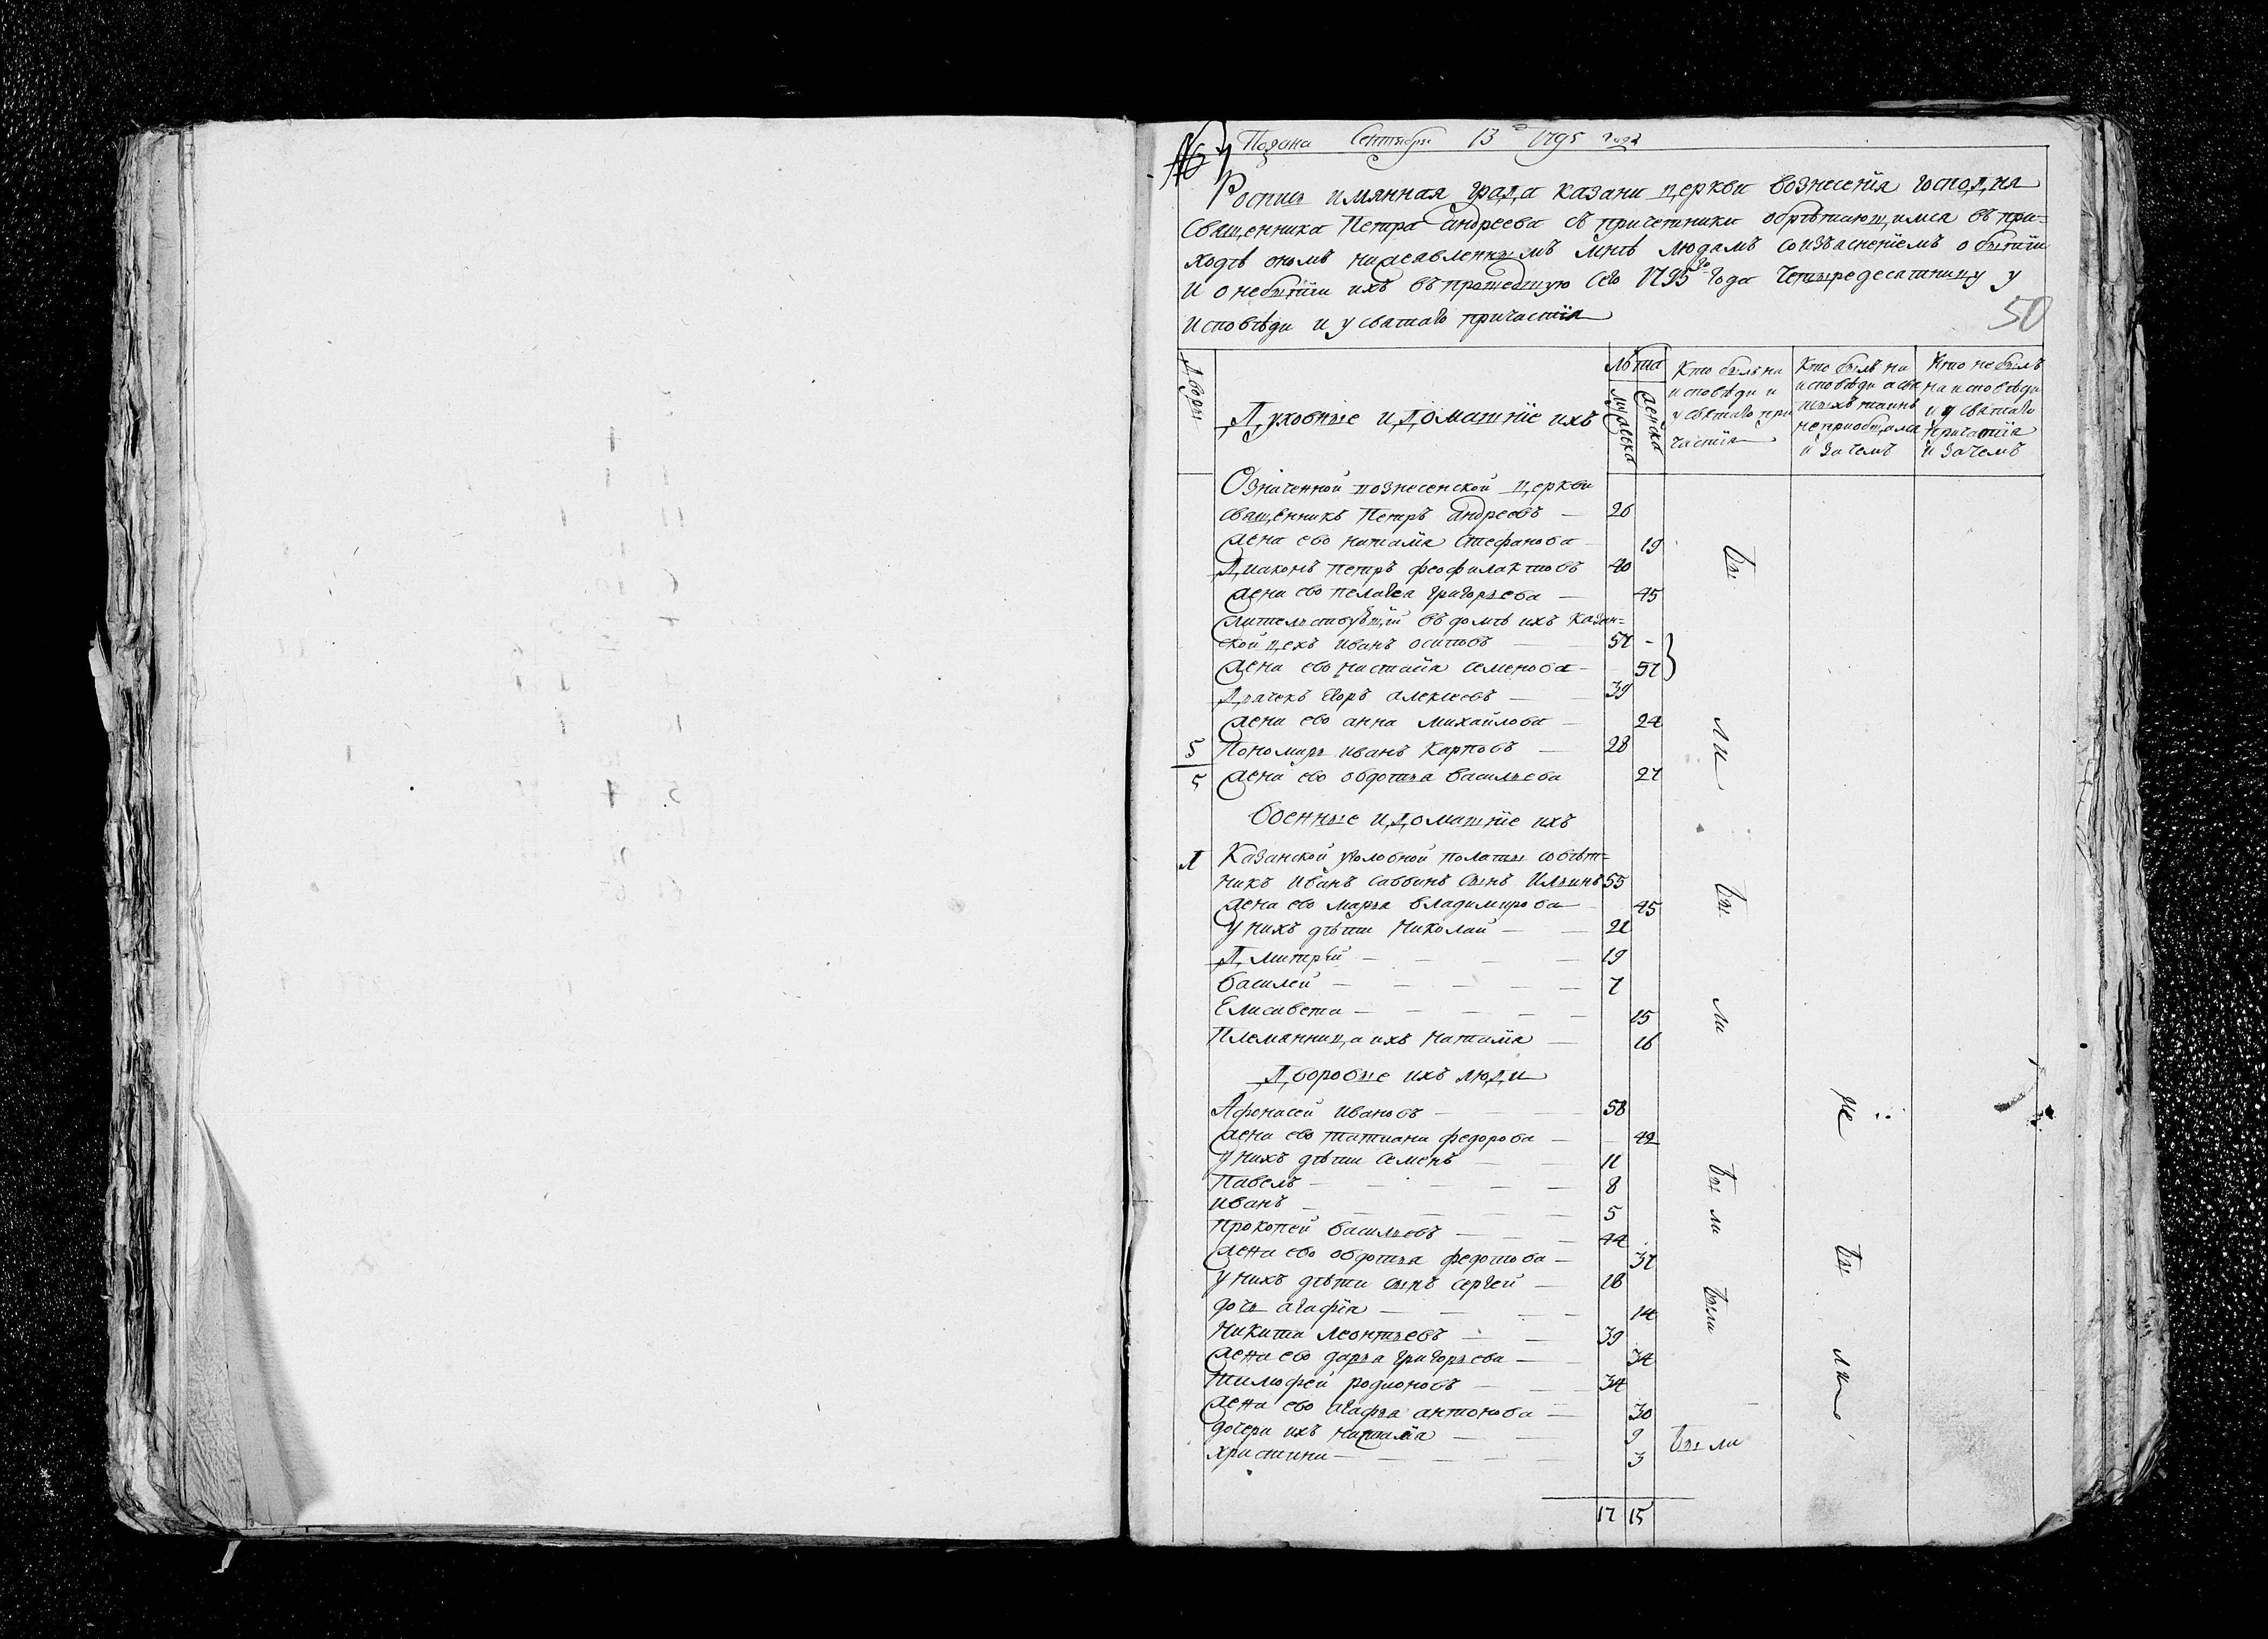 Подана Сентября 13 1795 года
Роспись имянная града казани церкви вознесенїя господня
священника Петра андреева съ причетники обрѣтающимся въ при-
ходѣ ономъ нижеявленнымъ лицъ людямъ соизъясненїемъ о бытїи
и о небытїи ихъ въ прошедшую сего 1795го года четыредесятницу у
исповѣди и у святаго причастїя
50
Дворы
Духовные и домашнїе ихъ
лѣта
мужеска
женска
Кто былъ на исповѣди и у святаго причастїя
Кто былъ на исповѣди а святыхъ таинъ неприобщался и зачемъ
Кто небылъ на исповѣди и у святаго причастїя и зачемъ
Означенной вознесенской церкви
священникъ Петръ андреевъ — 26
жена ево наталїя Стефанова 19
Диаконъ петръ феофилактовъ 40
жена ево пелагея григорьева — 45
жительствующїй въ домѣ ихъ казан-
ской цехъ иванъ осиповъ — 57
жена ево настасїя семенова — 57
Дьячекъ егоръ алексеевъ — 39
жена ево анна михайлова — 24
5 Пономарь иванъ карповъ — 28
5 жена ево овдотья васильева 27
бы ли
военные и домашнїе ихъ
Казанской уголовной полаты совѣт-
никъ иванъ саввинъ сынъ Ильинъ 55
жена ево марья владимирова — 45
у нихъ дѣти Николай — 21
Дмитрїй — 19
василей — 7
Елисавета — 15
Племянница ихъ наталїя — 16
бы ли
Дворовые ихъ люди
Афонасей ивановъ — 58
жена ево татиана федорова — 42
у нихъ дѣти семенъ — 11
Павелъ — 8
иванъ — 5
прокопей васильевъ — 44
жена ево овдотья федотова — 37
у нихъ дѣти сынъ сергей — 18
дочь агафїя — 14
никита леонтьевъ — 39
жена ево дарья григорьева — 34
тимофей родионовъ — 34
жена ево агафья антонова — 30
дочери ихъ наталїя — 9
христина — 3
бы ли
были
бы ли
не бы ли
17 15